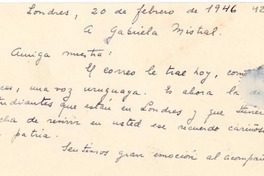 Londres, 20 de febrero de 1946
A Gabriela Mistral.
Amiga nuestra:
El correo le trae hoy, como
una voz uruguaya. Es ahora la de
estudiantes que están en Londres y que tienen
de reunir en usted ese recuerdo cariñoso
patria.
Sentimos gran emoción al acompañ